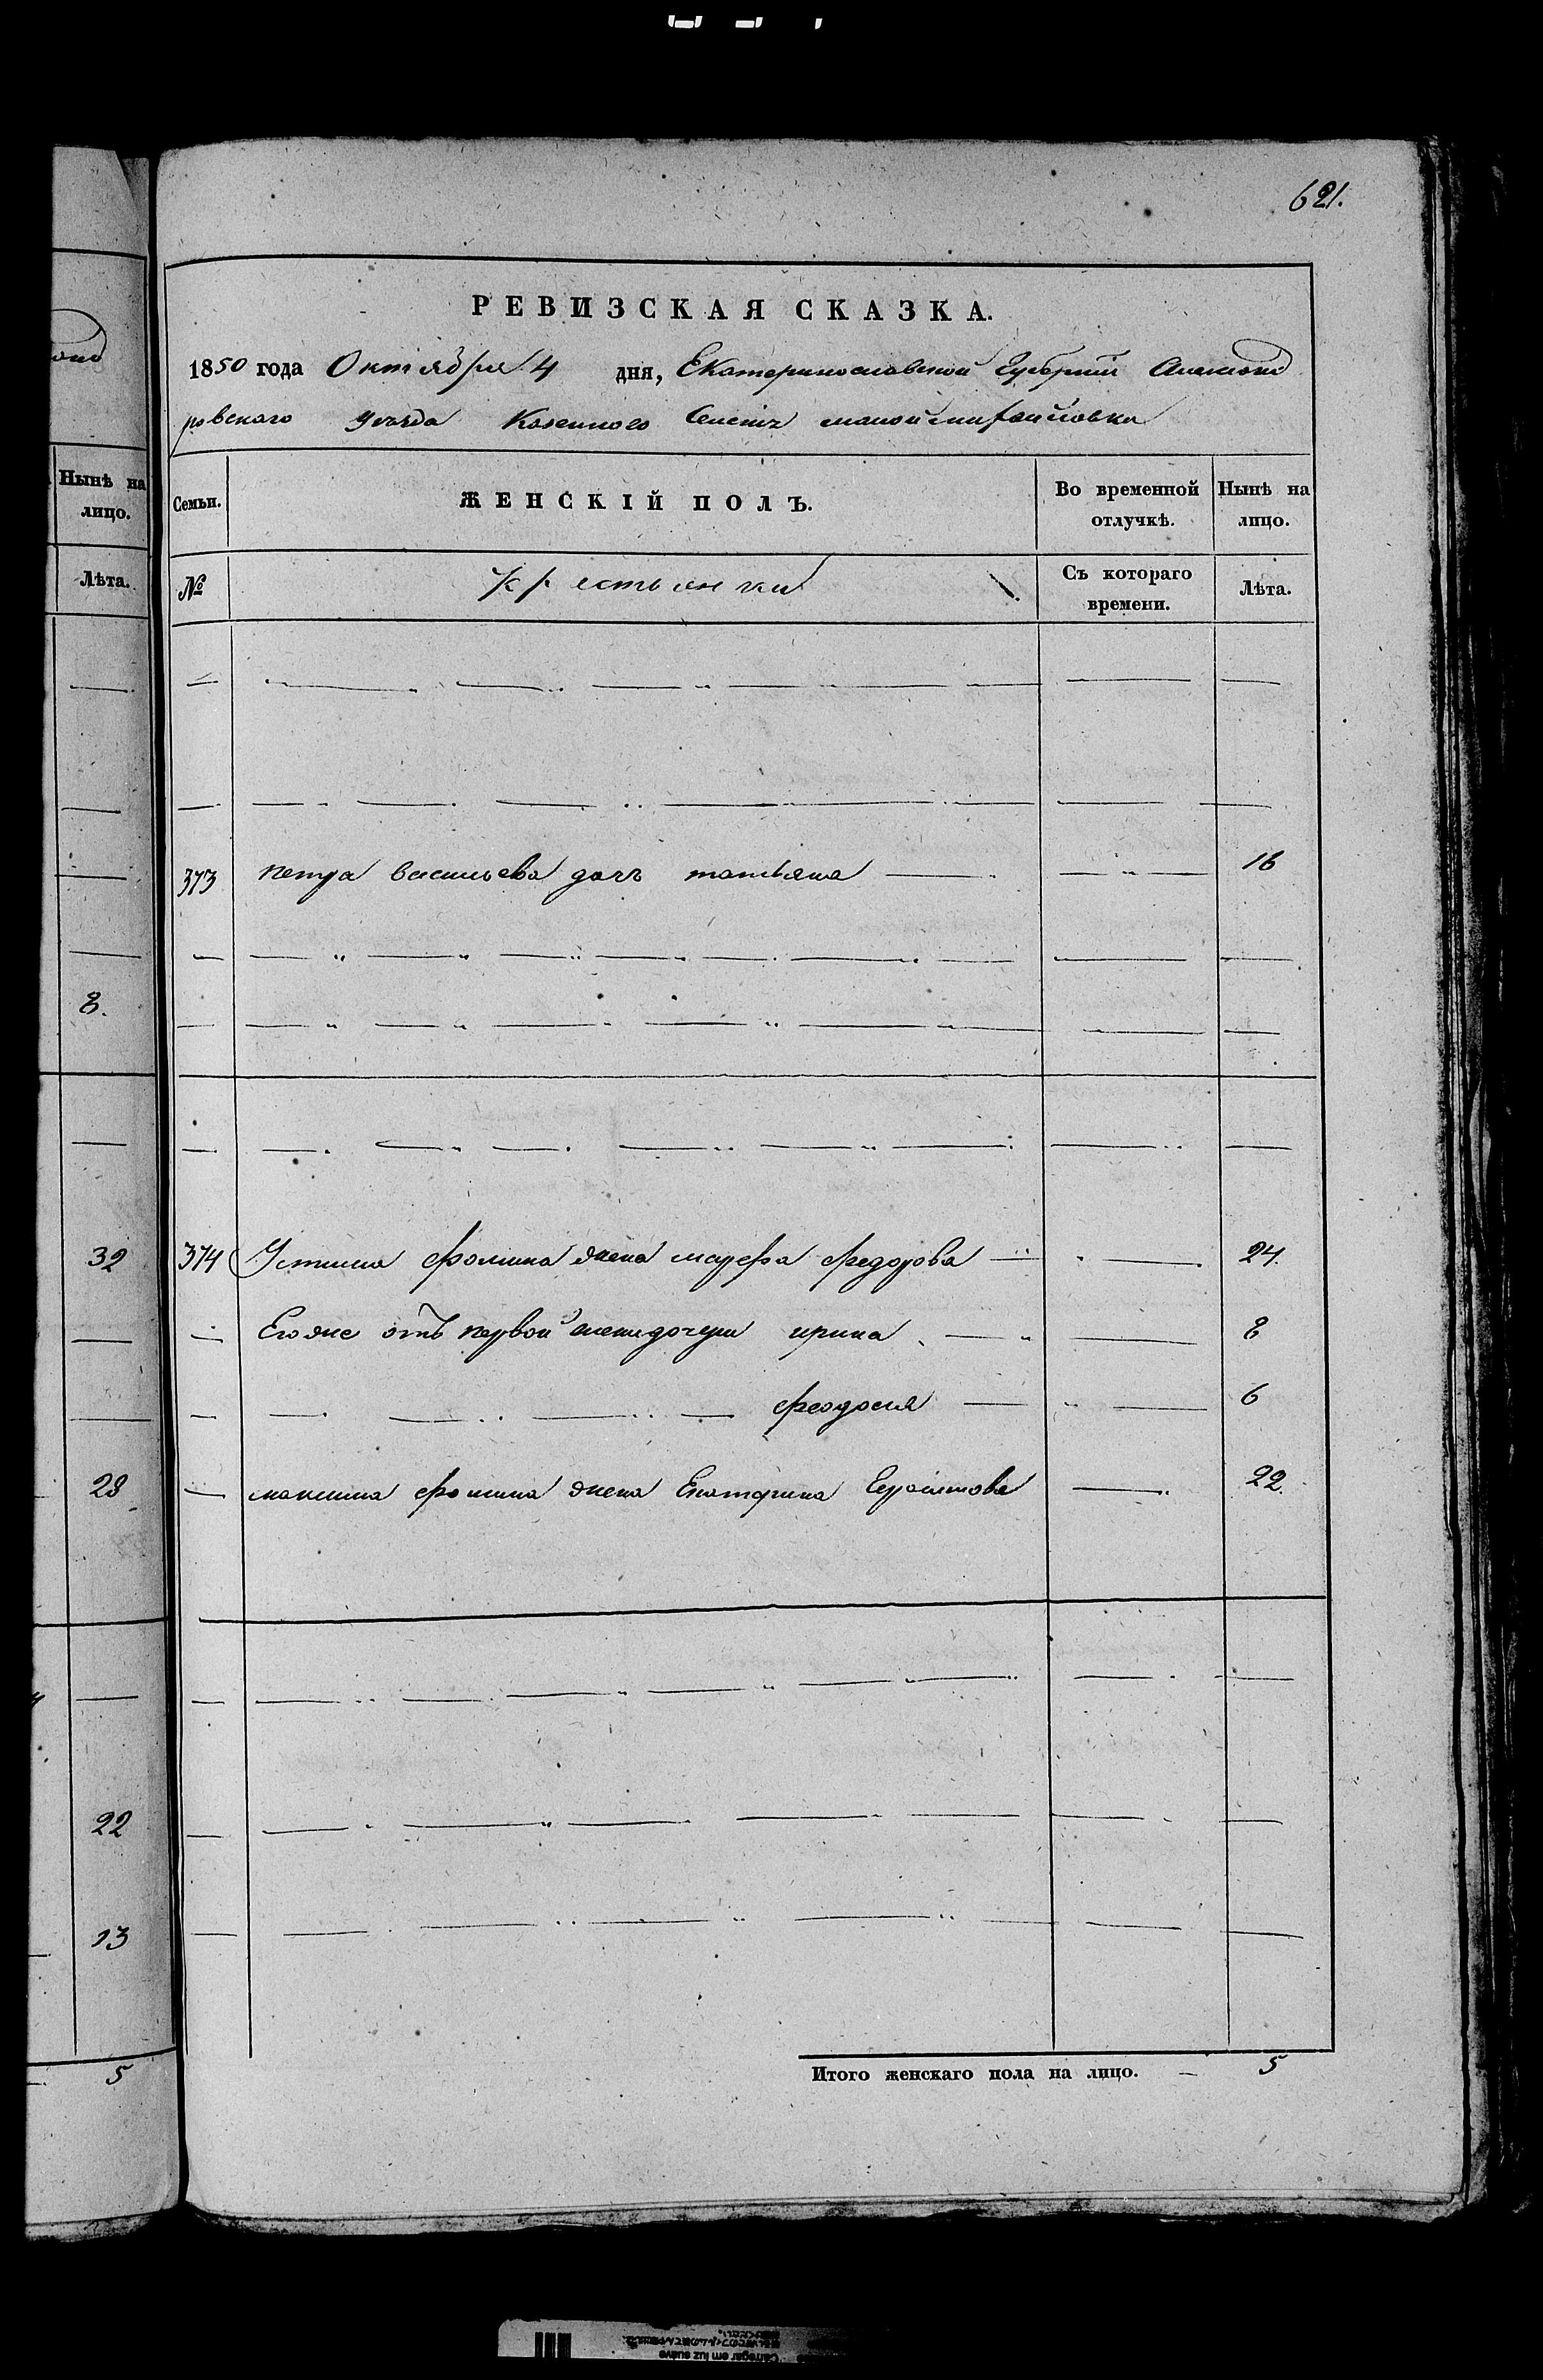 621.
РЕВИЗСКАЯ СКАЗКА.
1850 года Октября 4 дня, Екатеринославской Губернии Александ
ровскаго уезда Казенного Селения малой михайловки
Нынѣ на лицо.
Семьи.
ЖЕНСКІЙ ПОЛЪ.
Во временной отлучкѣ.
Нынѣ на лицо.
Лѣта.
№
крестьянки
Съ котораго времени.
Лѣта.
373 петра васильева дочь татьяна 16
8.
32
374 Устина фомина жена марфа федорова 24.
Его же отъ первой жены дочери ирина 8
феодосия 6
28
максима фомина жена Екатерина Герасимова 22.
22
13
5
Итого женскаго пола на лицо. — 5